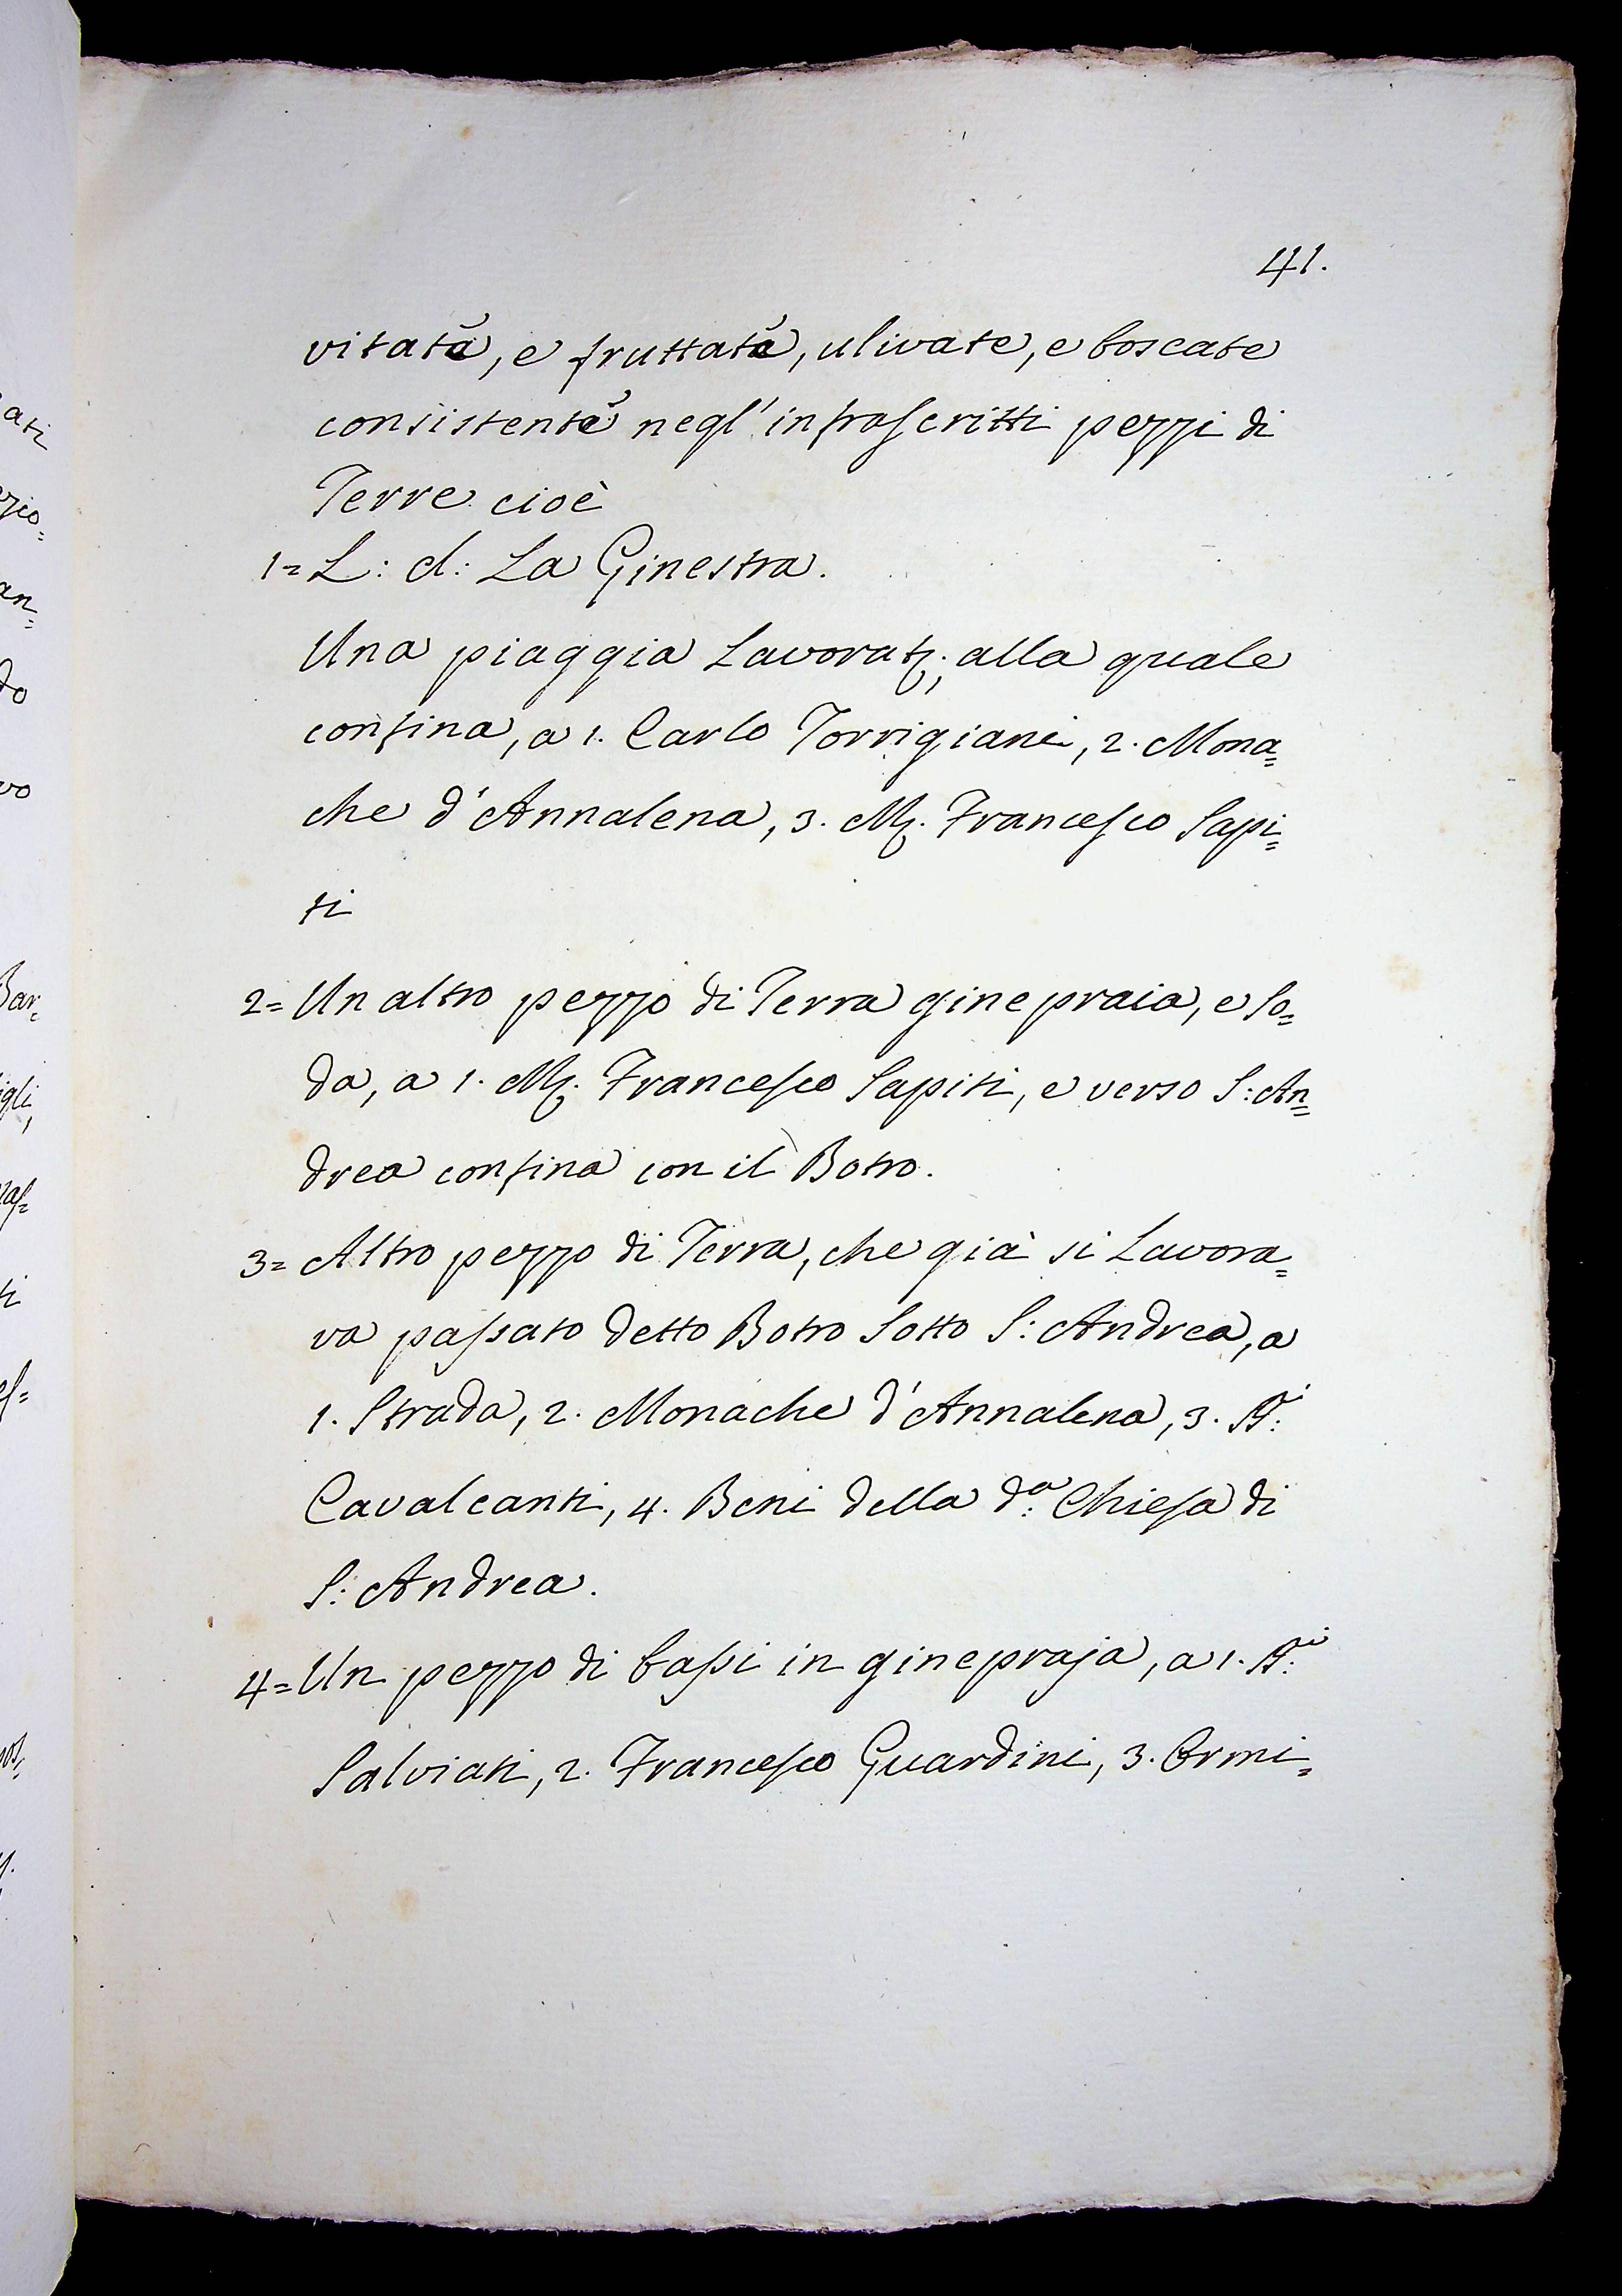 41.
vitate, e fruttate, ulivate, e boscate
consistente negl' infrascritti pezzi di
Terre cioè
1= L: d: La Ginestra.
Una piaggia Lavorat; alla quale
confina, a 1. Carlo Torrigiani, 2. Mona=
che d'Annalena, 3. M. Francesco Sapi=
ti
2= Un altro pezzo di Terra ginepraia, e so=
da, a 1. M. Francesco Sapiti, e verso S: An=
drea confina con il Botro.
3= Altro pezzo di Terra, che già si Lavora=
va passato detto Botro sotto S: Andrea, a
1. Strada, 2. Monache d'Annalena, 3. SS:i
Cavalcanti, 4. Beni della d:a Chiesa di
S: Andrea.
4= Un pezzo di bassi in ginepraja, a 1. SS:i
Salviati, 2. Francesco Guardini, 3. Ormi=